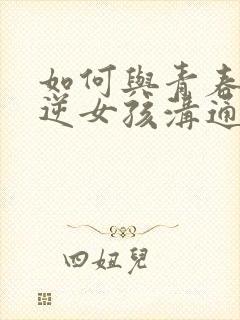 如何與青春
逆女孩溝通
四妞兒